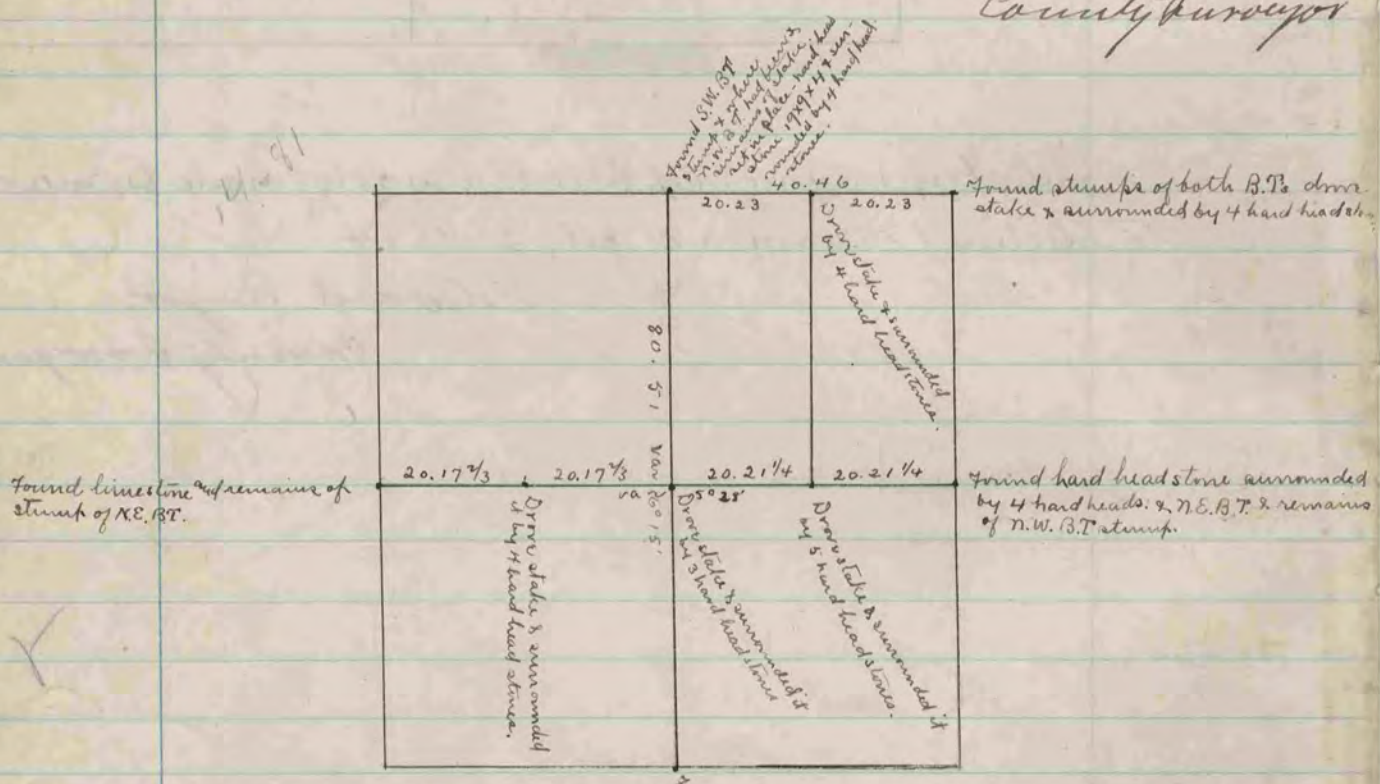 County Surveyor
Found S.W. BT
stump & where
N.W. B.T. had been &
remains of stake,
set in place - hard head
stone 19x9x4 & sur-
rounded by 4 hard head
stones.
40.46
20.23 20.23
Found stumps of both B.Ts drove
stake & surrounded by 4 hard head
Drove stake & surrounded
by 4 hard head stones.
80.51 Var 6°15'
Found limestone and remains of
stump of N.E. BT.
20.17 2/3 20.17 2/3 20.21 1/4 20.21 1/4
va 5°28'
Found hard head stone surrounded
by 4 hard heads. & N.E. B.T. & remains
of N.W. B.T stump.
Drove stake & surrounded
it by 4 hard head stones.
Drove stake & surrounded it
by 3 hard head stones
Drove stake & surrounded it
by 5 hard head stones.